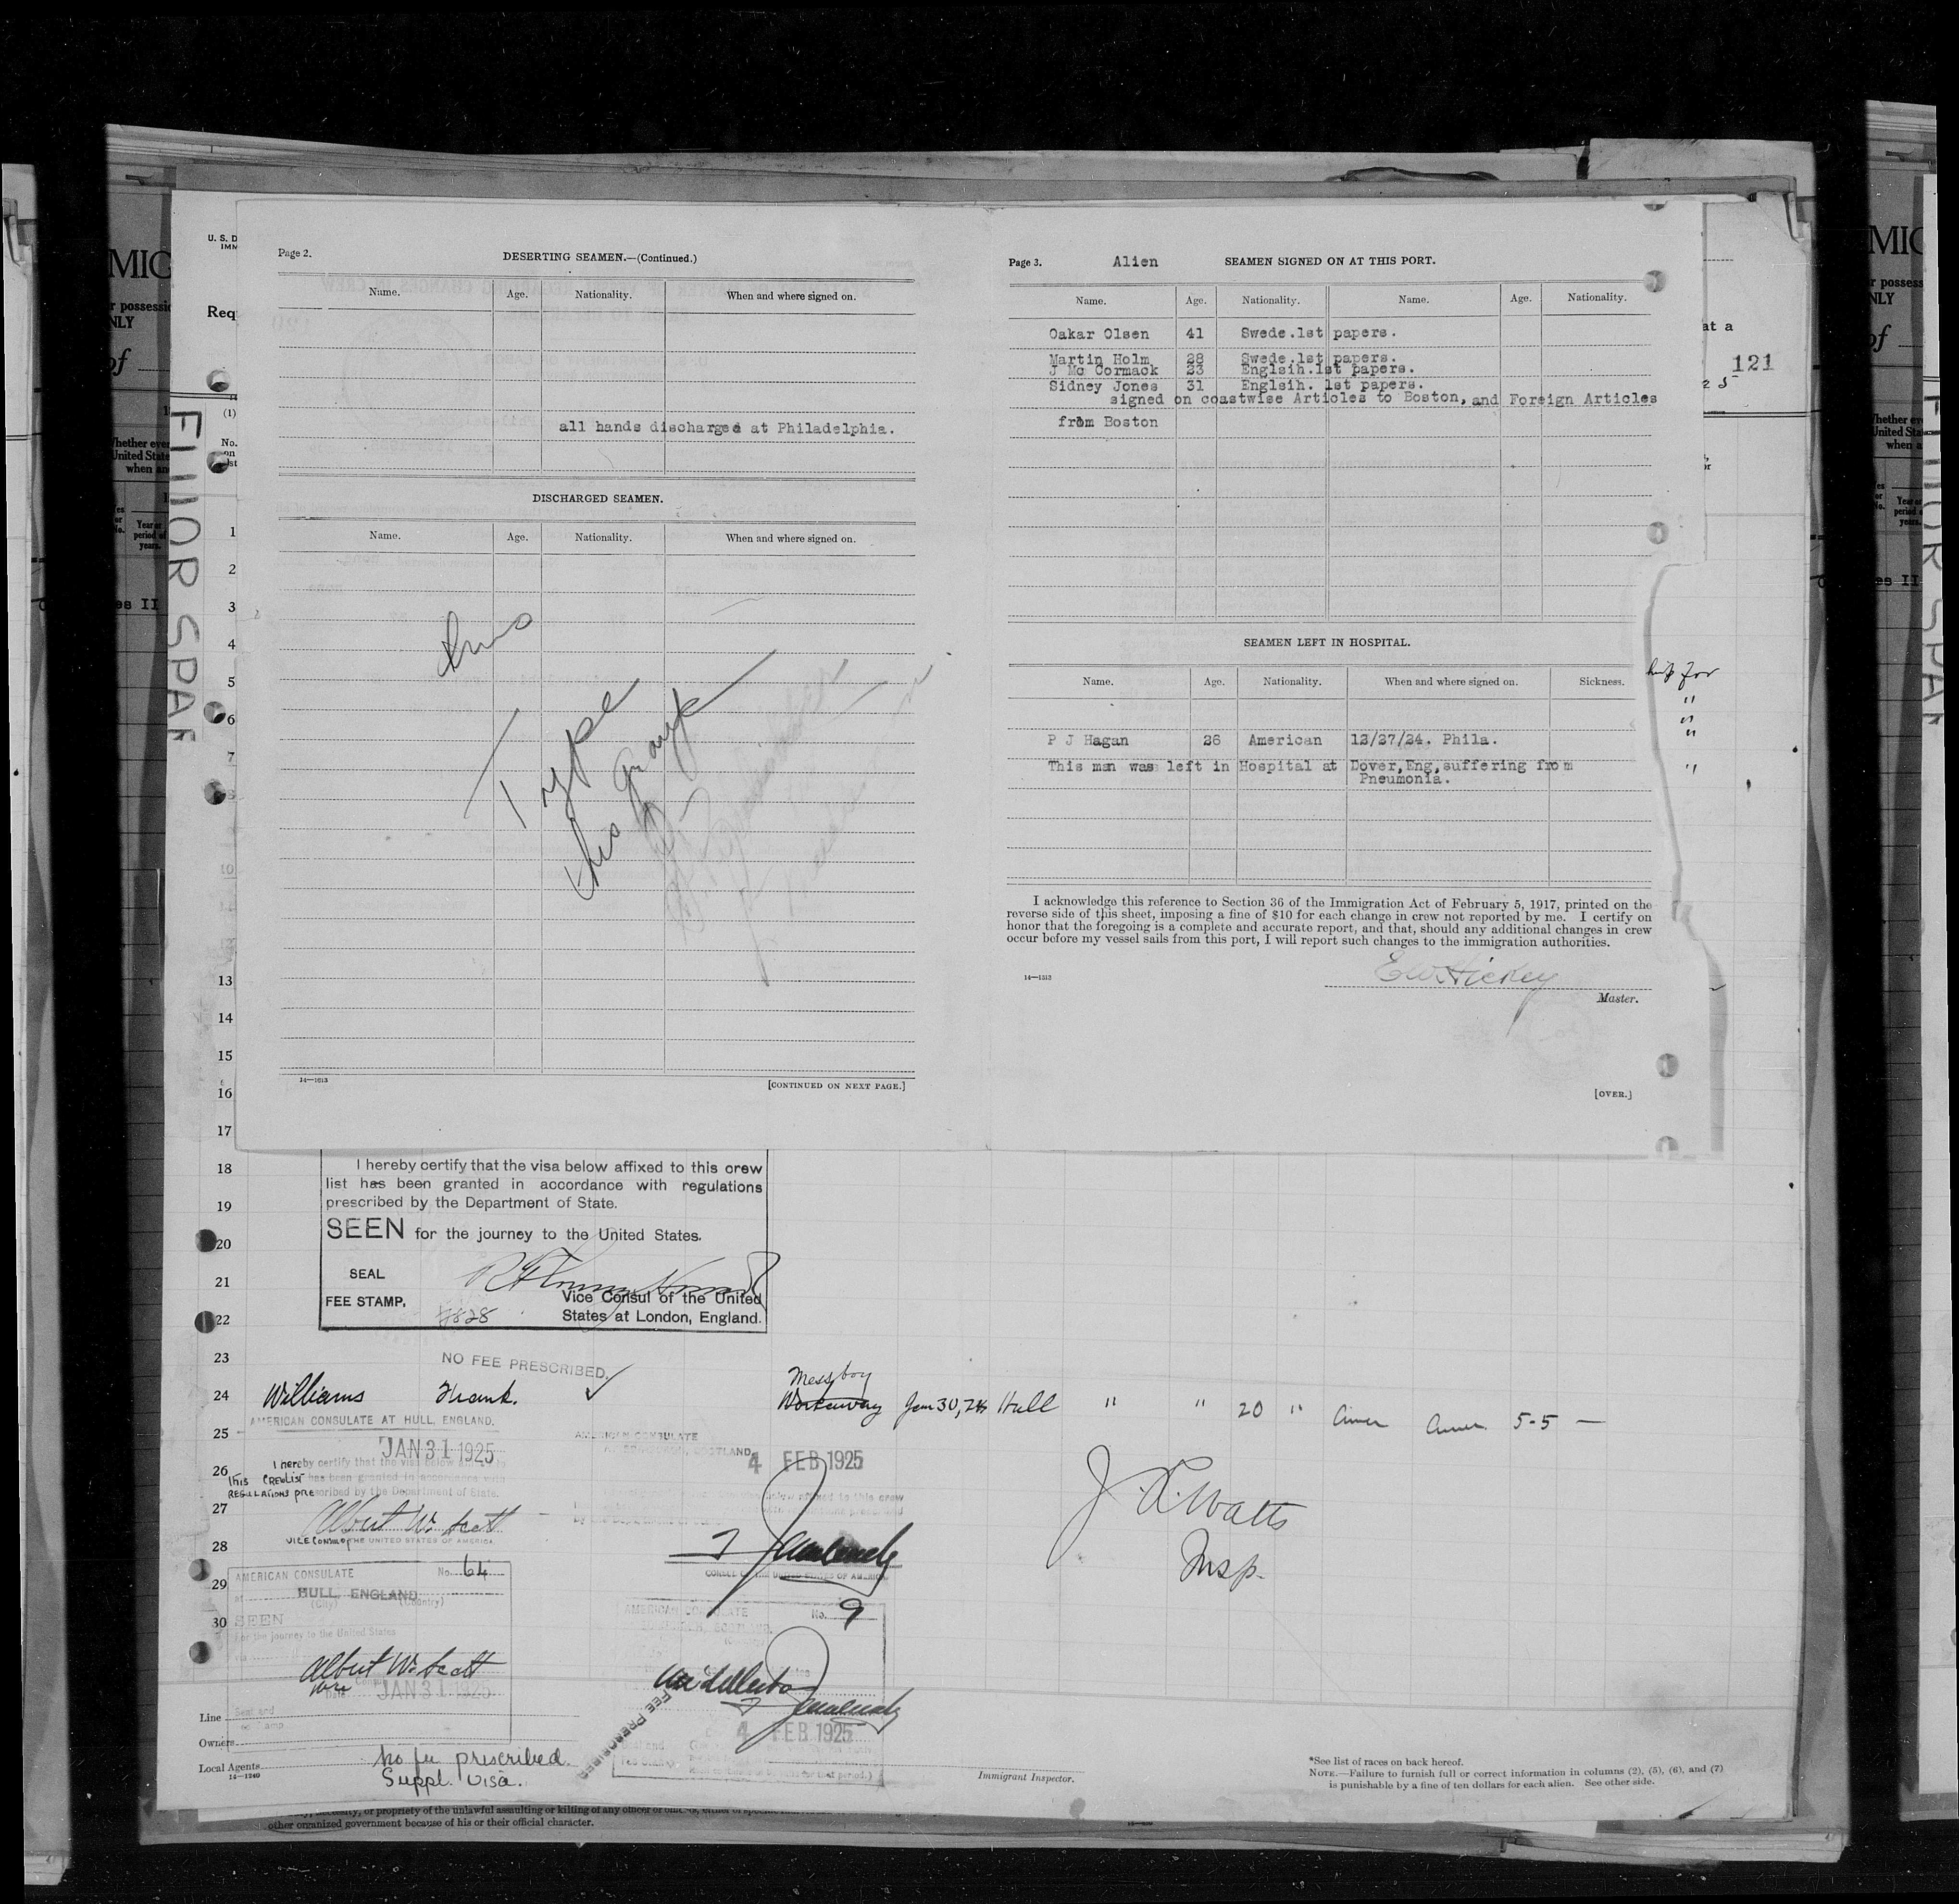 Page 2.
DESERTING SEAMEN.—(Continued.)
Name. Age. Nationality. When and where signed on.
all hands discharged at Philadelphia.
DISCHARGED SEAMEN.
Name. Age. Nationality. When and where signed on.
Type
this
14—1513
[CONTINUED ON NEXT PAGE.]
Page 3. Alien SEAMEN SIGNED ON AT THIS PORT.
Name. Age. Nationality. Name. Age. Nationality.
Oakar Olsen 41 Swede.1st papers.
Martin Holm 28 Swede.1st papers.
J Mc Cormack 23 Englsih.1st papers.
Sidney Jones 31 Englsih. 1st papers.
signed on coastwise Articles to Boston, and Foreign Articles
from Boston
SEAMEN LEFT IN HOSPITAL.
Name. Age. Nationality. When and where signed on. Sickness.
P J Hagan 26 American 12/27/24. Phila.
This man was left in Hospital at Dover,Eng,suffering from
Pneumonia.
I acknowledge this reference to Section 36 of the Immigration Act of February 5, 1917, printed on the
reverse side of this sheet, imposing a fine of $10 for each change in crew not reported by me. I certify on
honor that the foregoing is a complete and accurate report, and that, should any additional changes in crew
occur before my vessel sails from this port, I will report such changes to the immigration authorities.
14—1513
E W Hickey
Master.
[OVER.]
121
U. S. D
IMM
Req
(1)
No.
on
list
1
2
3
4
5
6
7
8
10
13
14
15
16
17
18
19
20
21
22
23
24
25
26
27
28
29
30
I hereby certify that the visa below affixed to this crew
list has been granted in accordance with regulations
prescribed by the Department of State.
SEEN for the journey to the United States.
SEAL
FEE STAMP.
Vice Consul of the United
States at London, England.
NO FEE PRESCRIBED.
Messboy
Williams Frank. Workaway Jan 30, 25 Hull " " 20 " Amer Amer 5-5 —
AMERICAN CONSULATE AT HULL, ENGLAND.
JAN 31 1925
I hereby certify that the visa below
this CREW LIST has been granted in accordance with
REGULATIONS prescribed by the Department of State.
Albert W. Scott
VICE CONSUL OF THE UNITED STATES OF AMERICA.
AMERICAN CONSULATE No. 64
at HULL, ENGLAND
(City) (Country)
SEEN
For the journey to the United States
Albert W. Scott
Vice Consul
Date JAN 31 1925
AMERICAN CONSULATE
4 FEB 1925
CONSUL OF THE UNITED STATES OF AMERICA
AMERICAN CONSULATE No. 9
4 FEB 1925
FEE PRESCRIBED
J. A. Watts
Insp.
Line
Owners
Local Agents
14—1240
No fee prescribed.
Suppl. visa.
Immigrant Inspector.
*See list of races on back hereof.
NOTE.—Failure to furnish full or correct information in columns (2), (5), (6), and (7)
is punishable by a fine of ten dollars for each alien. See other side.
other organized government because of his or their official character.